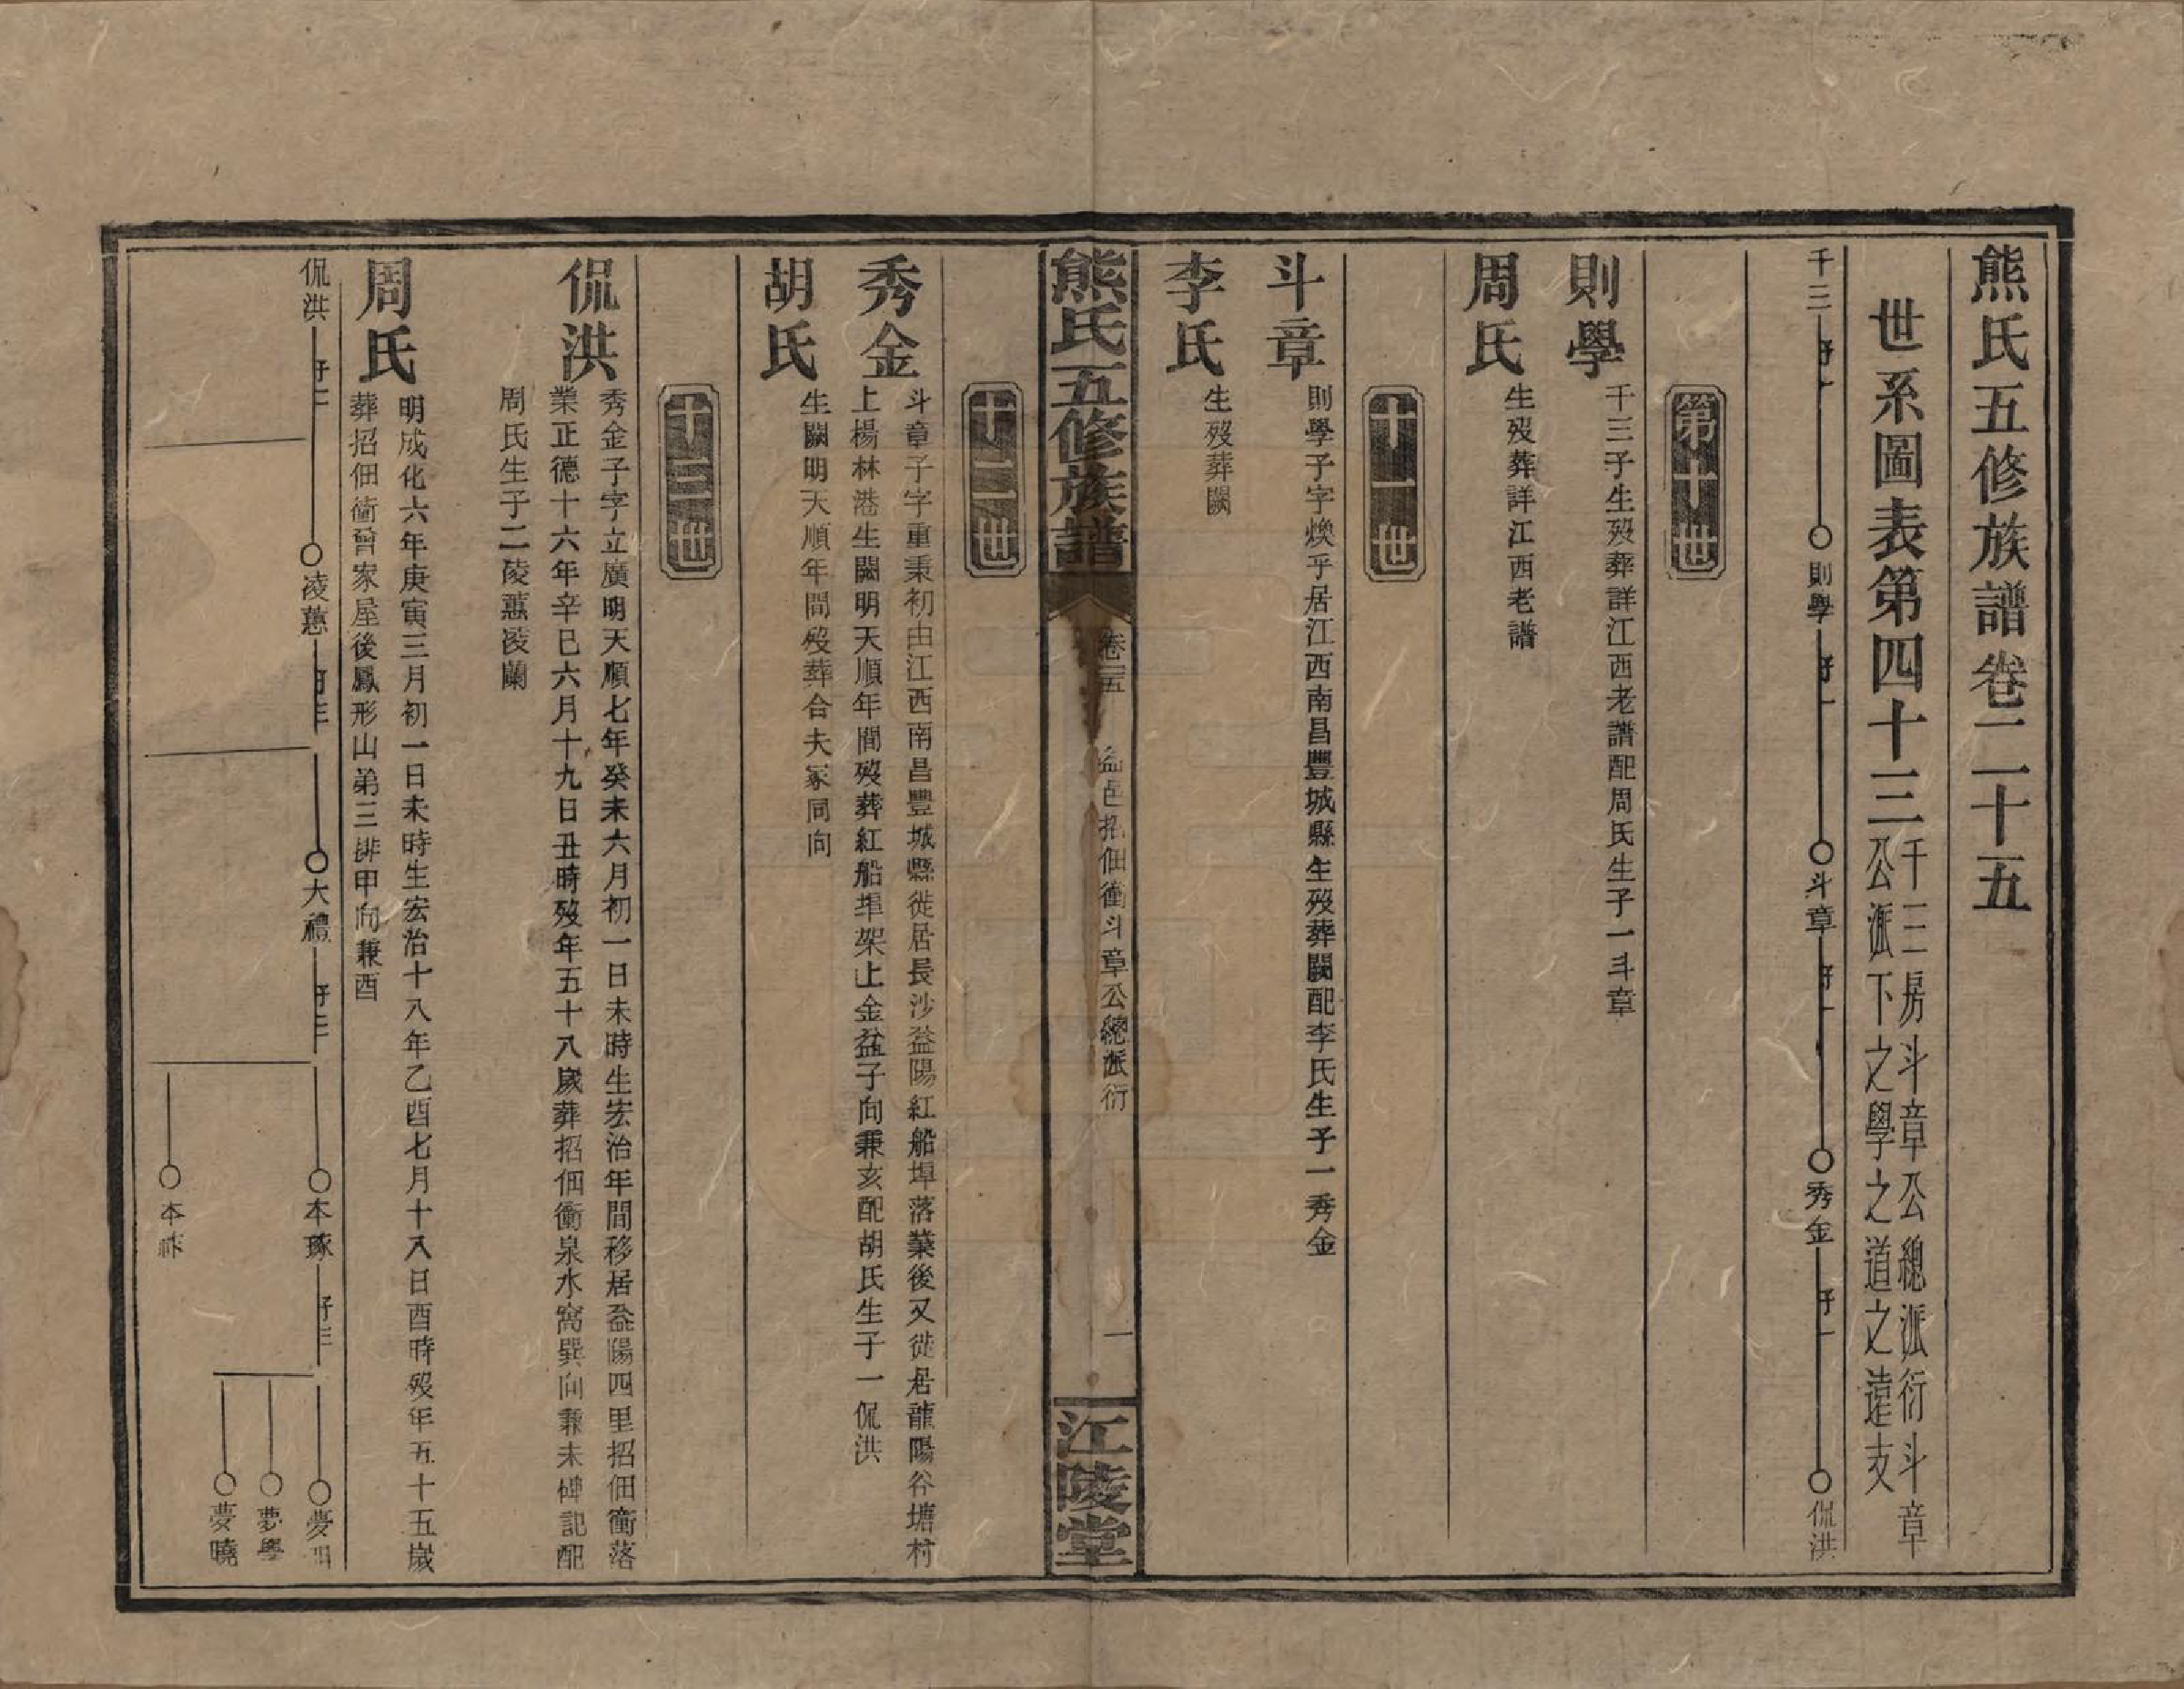 熊氏五修族譜卷二十五
世系圖表第四十三
千三房斗章公總派衍斗章
公派下之學之道之遠支
千三 子一 ○則學 子一 ○斗章 子一 ○秀金 子一 ○侃洪
第十世
則學
千三子生歿葬詳江西老譜配周氏生子一斗章
周氏
生歿葬詳江西老譜
十一世
斗章
則學子字煥乎居江西南昌豐城縣生歿葬闕配李氏生子一秀金
李氏
生歿葬闕
熊氏五修族譜
卷二五
益邑招佃衝斗章公總派衍
一
江陵堂
十二世
秀金
斗章子字重秉初由江西南昌豐城縣徙居長沙益陽紅船埠落業後又徙居龍陽谷塘村
上楊林港生闕明天順年間歿葬紅船埠架上金盆子向兼亥配胡氏生子一侃洪
胡氏
生闕明天順年間歿葬合夫冢同向
十三世
侃洪
秀金子字立廣明天順七年癸未六月初一日未時生宏治年間移居益陽四里招佃衝落
業正德十六年辛巳六月十九日丑時歿年五十八歲葬招佃衝泉水窩巽向兼未碑記配
周氏生子二凌蕙凌蘭
周氏
明成化六年庚寅三月初一日未時生宏治十八年乙酉七月十八日酉時歿年五十五歲
葬招佃衝曾家屋後鳳形山第三排甲向兼酉
侃洪 子二 ○凌蕙 子三 ○大禮 子二 ○本琢 子三 ○夢
○夢學
○夢曉
○本